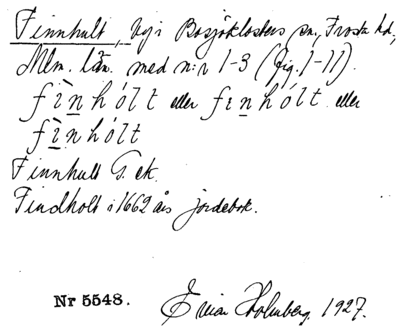 Finnhult, by i Bosjöklosters sn, Frosta hd,
Mlm. län. med n:r 1-3 (fig. 1-11).
fìnhólt eller fınhólt eller
fìnhólt
Finnhult G. ek.
Findholt i 1662 års jordebok.
Nr 5548. Einar Holmberg. 1927.